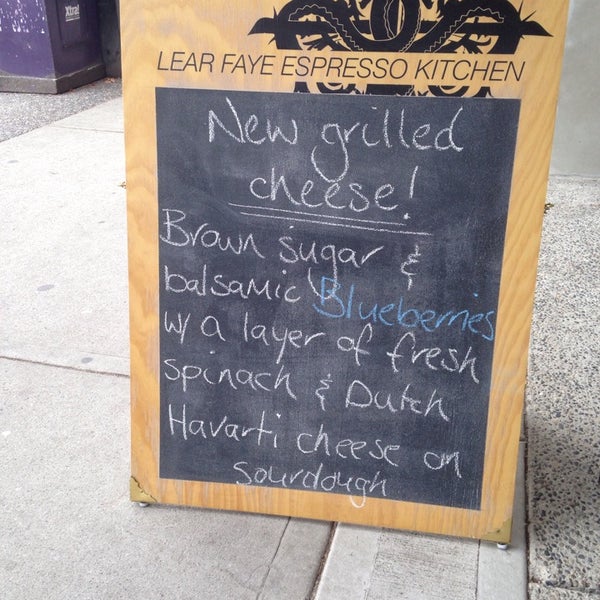 Xtra!
LEAR FAYE ESPRESSO KITCHEN
New grilled
cheese!
Brown sugar &
balsamic Blueberries
w/ a layer of fresh
spinach & Dutch
Havarti cheese on
sourdough